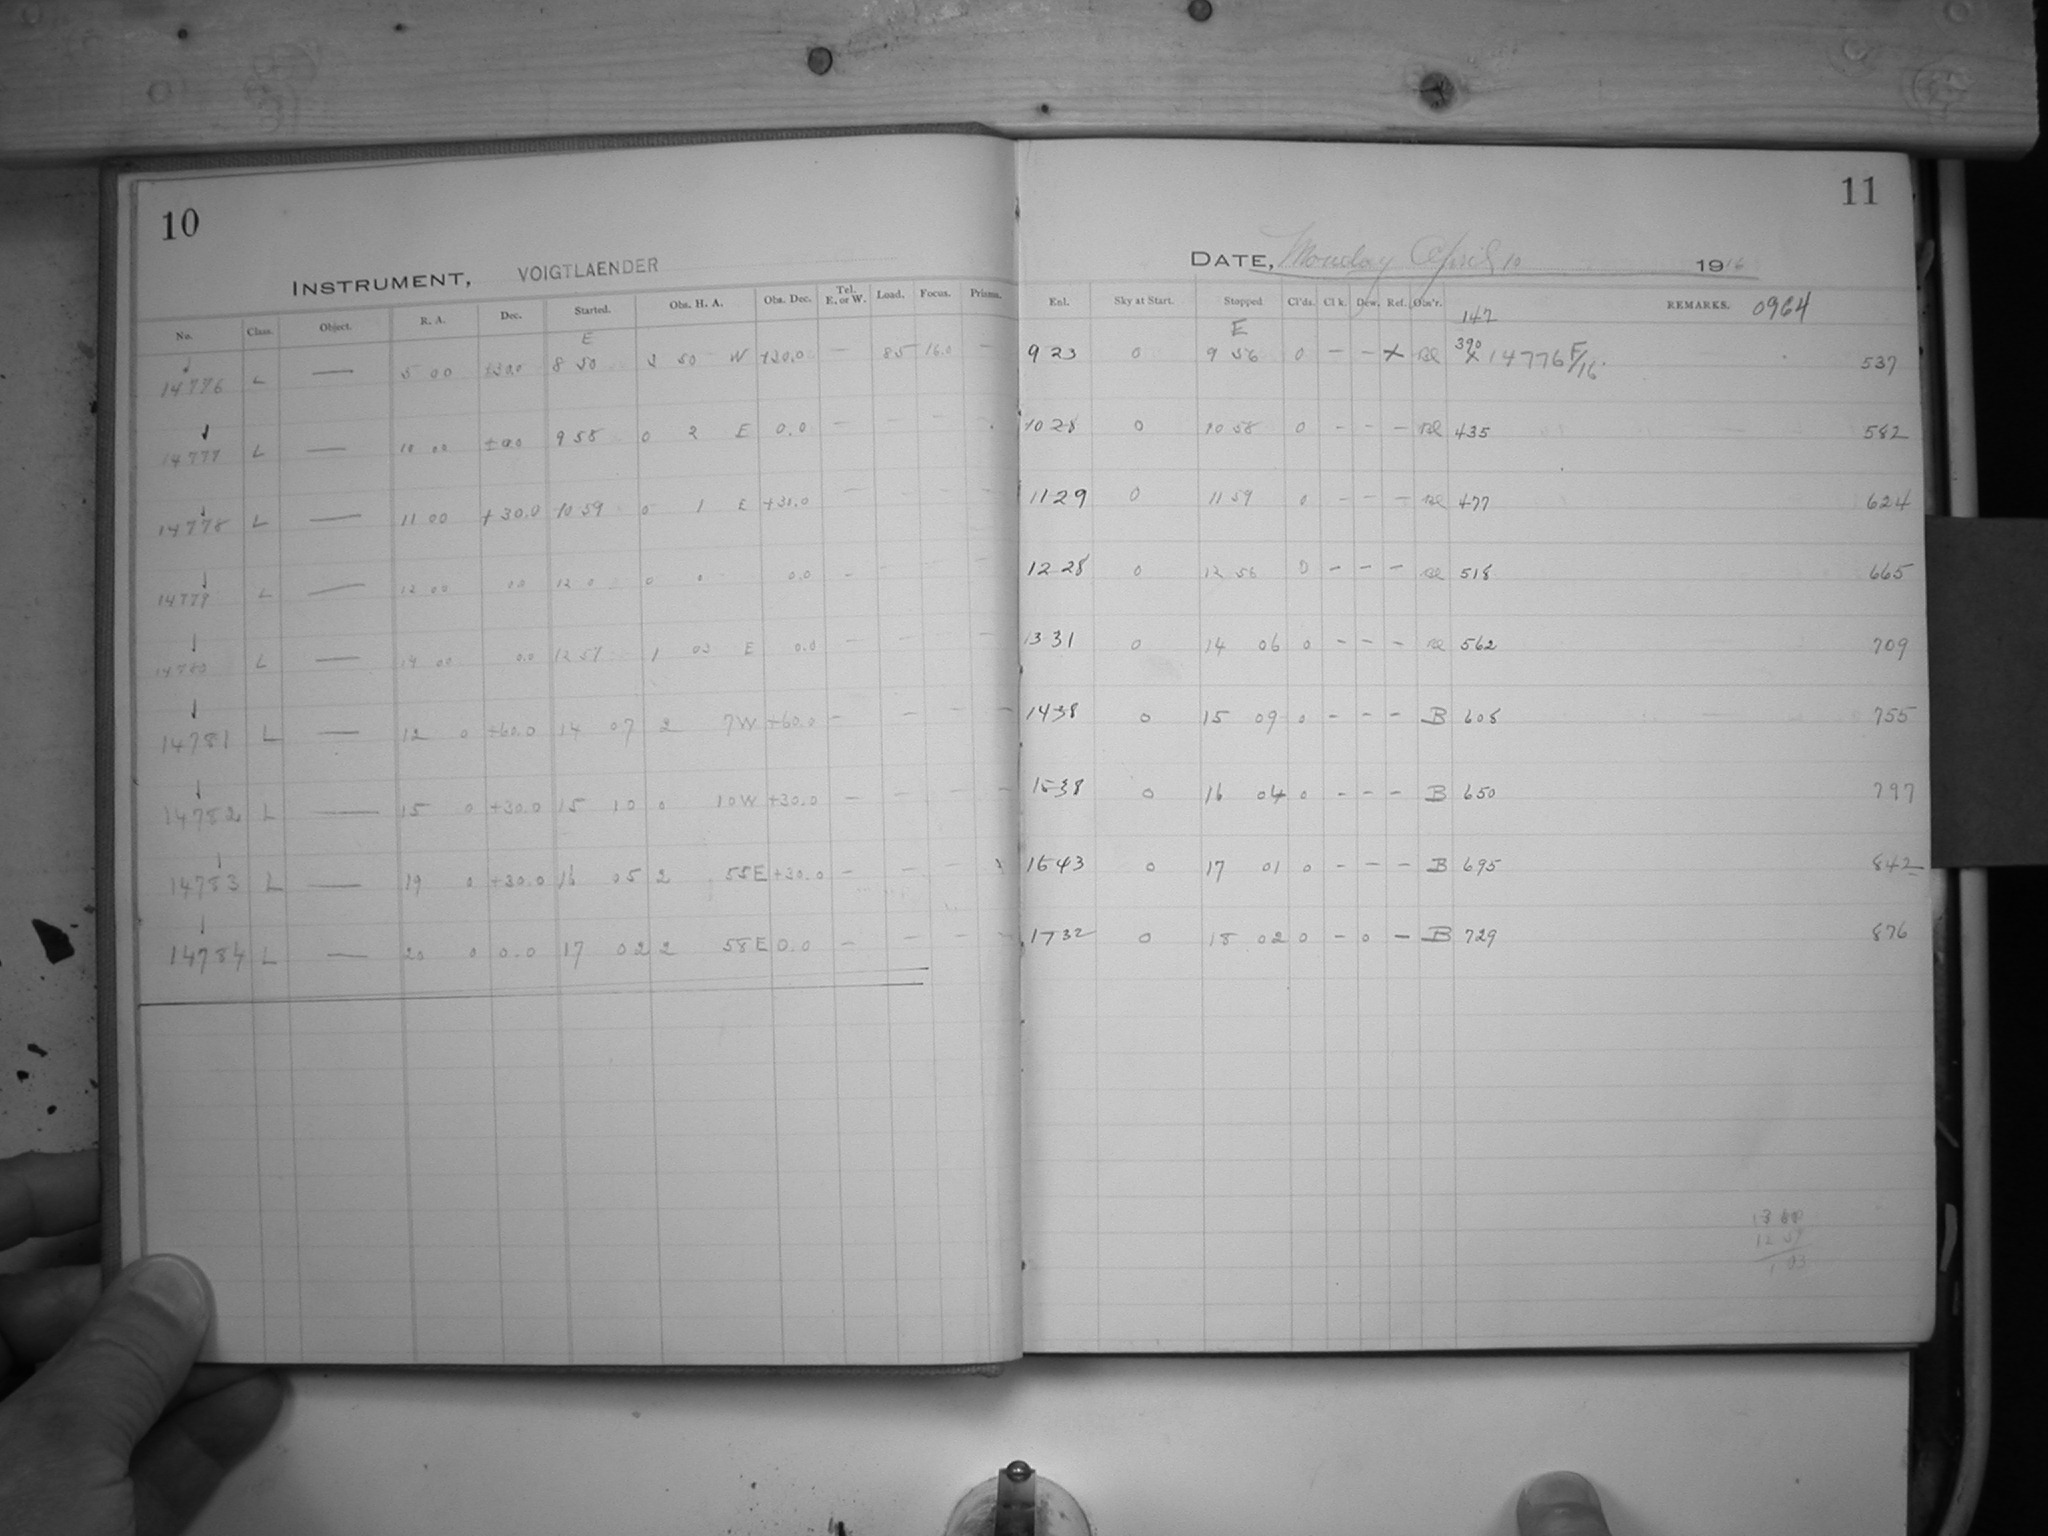 10
INSTRUMENT, VOIGTLAENDER
No. Class. Object. R. A. Dec. Started. Obs. H. A. Obs. Dec. Tel. E. or W. Load. Focus. Prisms.
E
14776 L — 5 00 +30.0 8 50 3 50 W +30.0 — 85 16.0 —
14777 L — 10 00 ±0.0 9 58 0 2 E 0.0 — — — —
14778 L — 11 00 +30.0 10 59 0 1 E +30.0 — — — —
14779 L — 12 00 0.0 12 0 0 0 0.0 — — — —
14780 L — 14 00 0.0 12 57 1 03 E 0.0 — — — —
14781 L — 12 0 +60.0 14 07 2 7 W +60.0 — — — —
14782 L — 15 0 +30.0 15 10 0 10 W +30.0 — — — —
14783 L — 19 0 +30.0 16 05 2 55 E +30.0 — — —
14784 L — 20 0 0.0 17 02 2 58 E 0.0 — — — —
11
DATE, Monday April 10 1916
Enl. Sky at Start. Stopped Cl'ds. Cl k. Dew. Ref. Obs'r. REMARKS. 0964
147
E
9 23 0 9 56 0 — — X 390 X 14776 F/16. 537
10 28 0 10 58 0 - - - 435 582
11 29 0 11 59 0 - - - 477 624
12 28 0 12 56 0 - - - 518 665
13 31 0 14 06 0 - - - 562 709
14 38 0 15 09 0 - - - B 608 755
15 38 0 16 04 0 - - - B 650 797
16 43 0 17 01 0 - - - B 695 842
17 32 0 18 02 0 - 0 - B 729 876
13 60
12 57
1 03